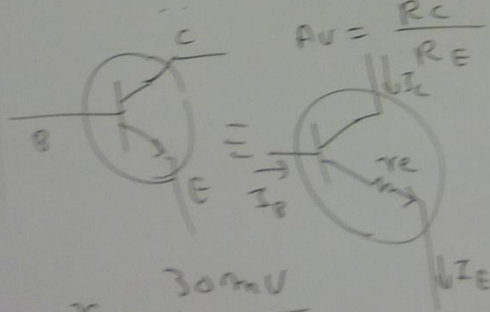 C
Av = RC / RE
B
E
≡
IC
re
IB
IE
30mV